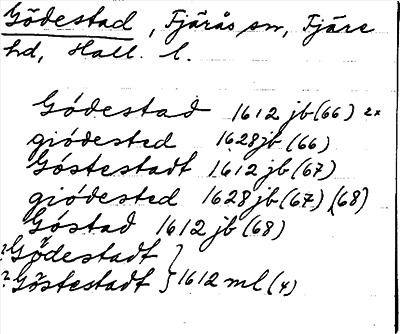 Gödestad, Fjärås sn, Fjäre
hd, Hall. l.
Gódestad 1612 jb (66) 2x
giódested 1628 jb (66)
Góstestadt 1612 jb (67)
giódested 1628 jb (67) (68)
Góstad 1612 jb (68)
? Gödestadt }
? Göstestadt } 1612 ml (4)